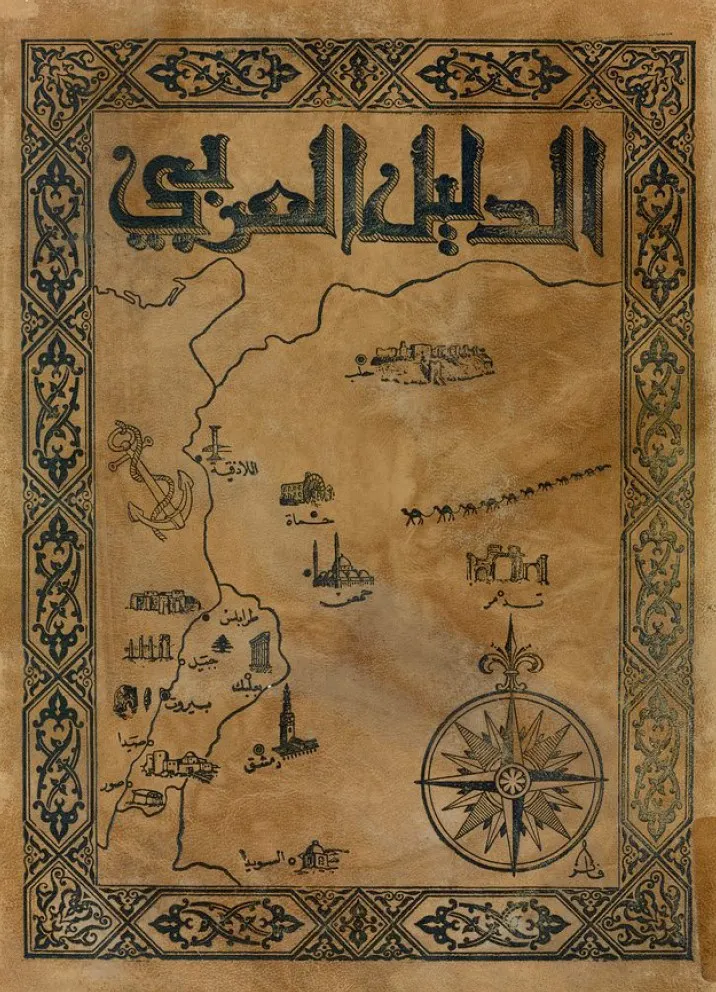 الدليل العربي
حلب
اللاذقية
حماة
حمص
تدمر
طرابلس
جبيل
بعلبك
بيروت
صيدا
دمشق
صور
السويدا